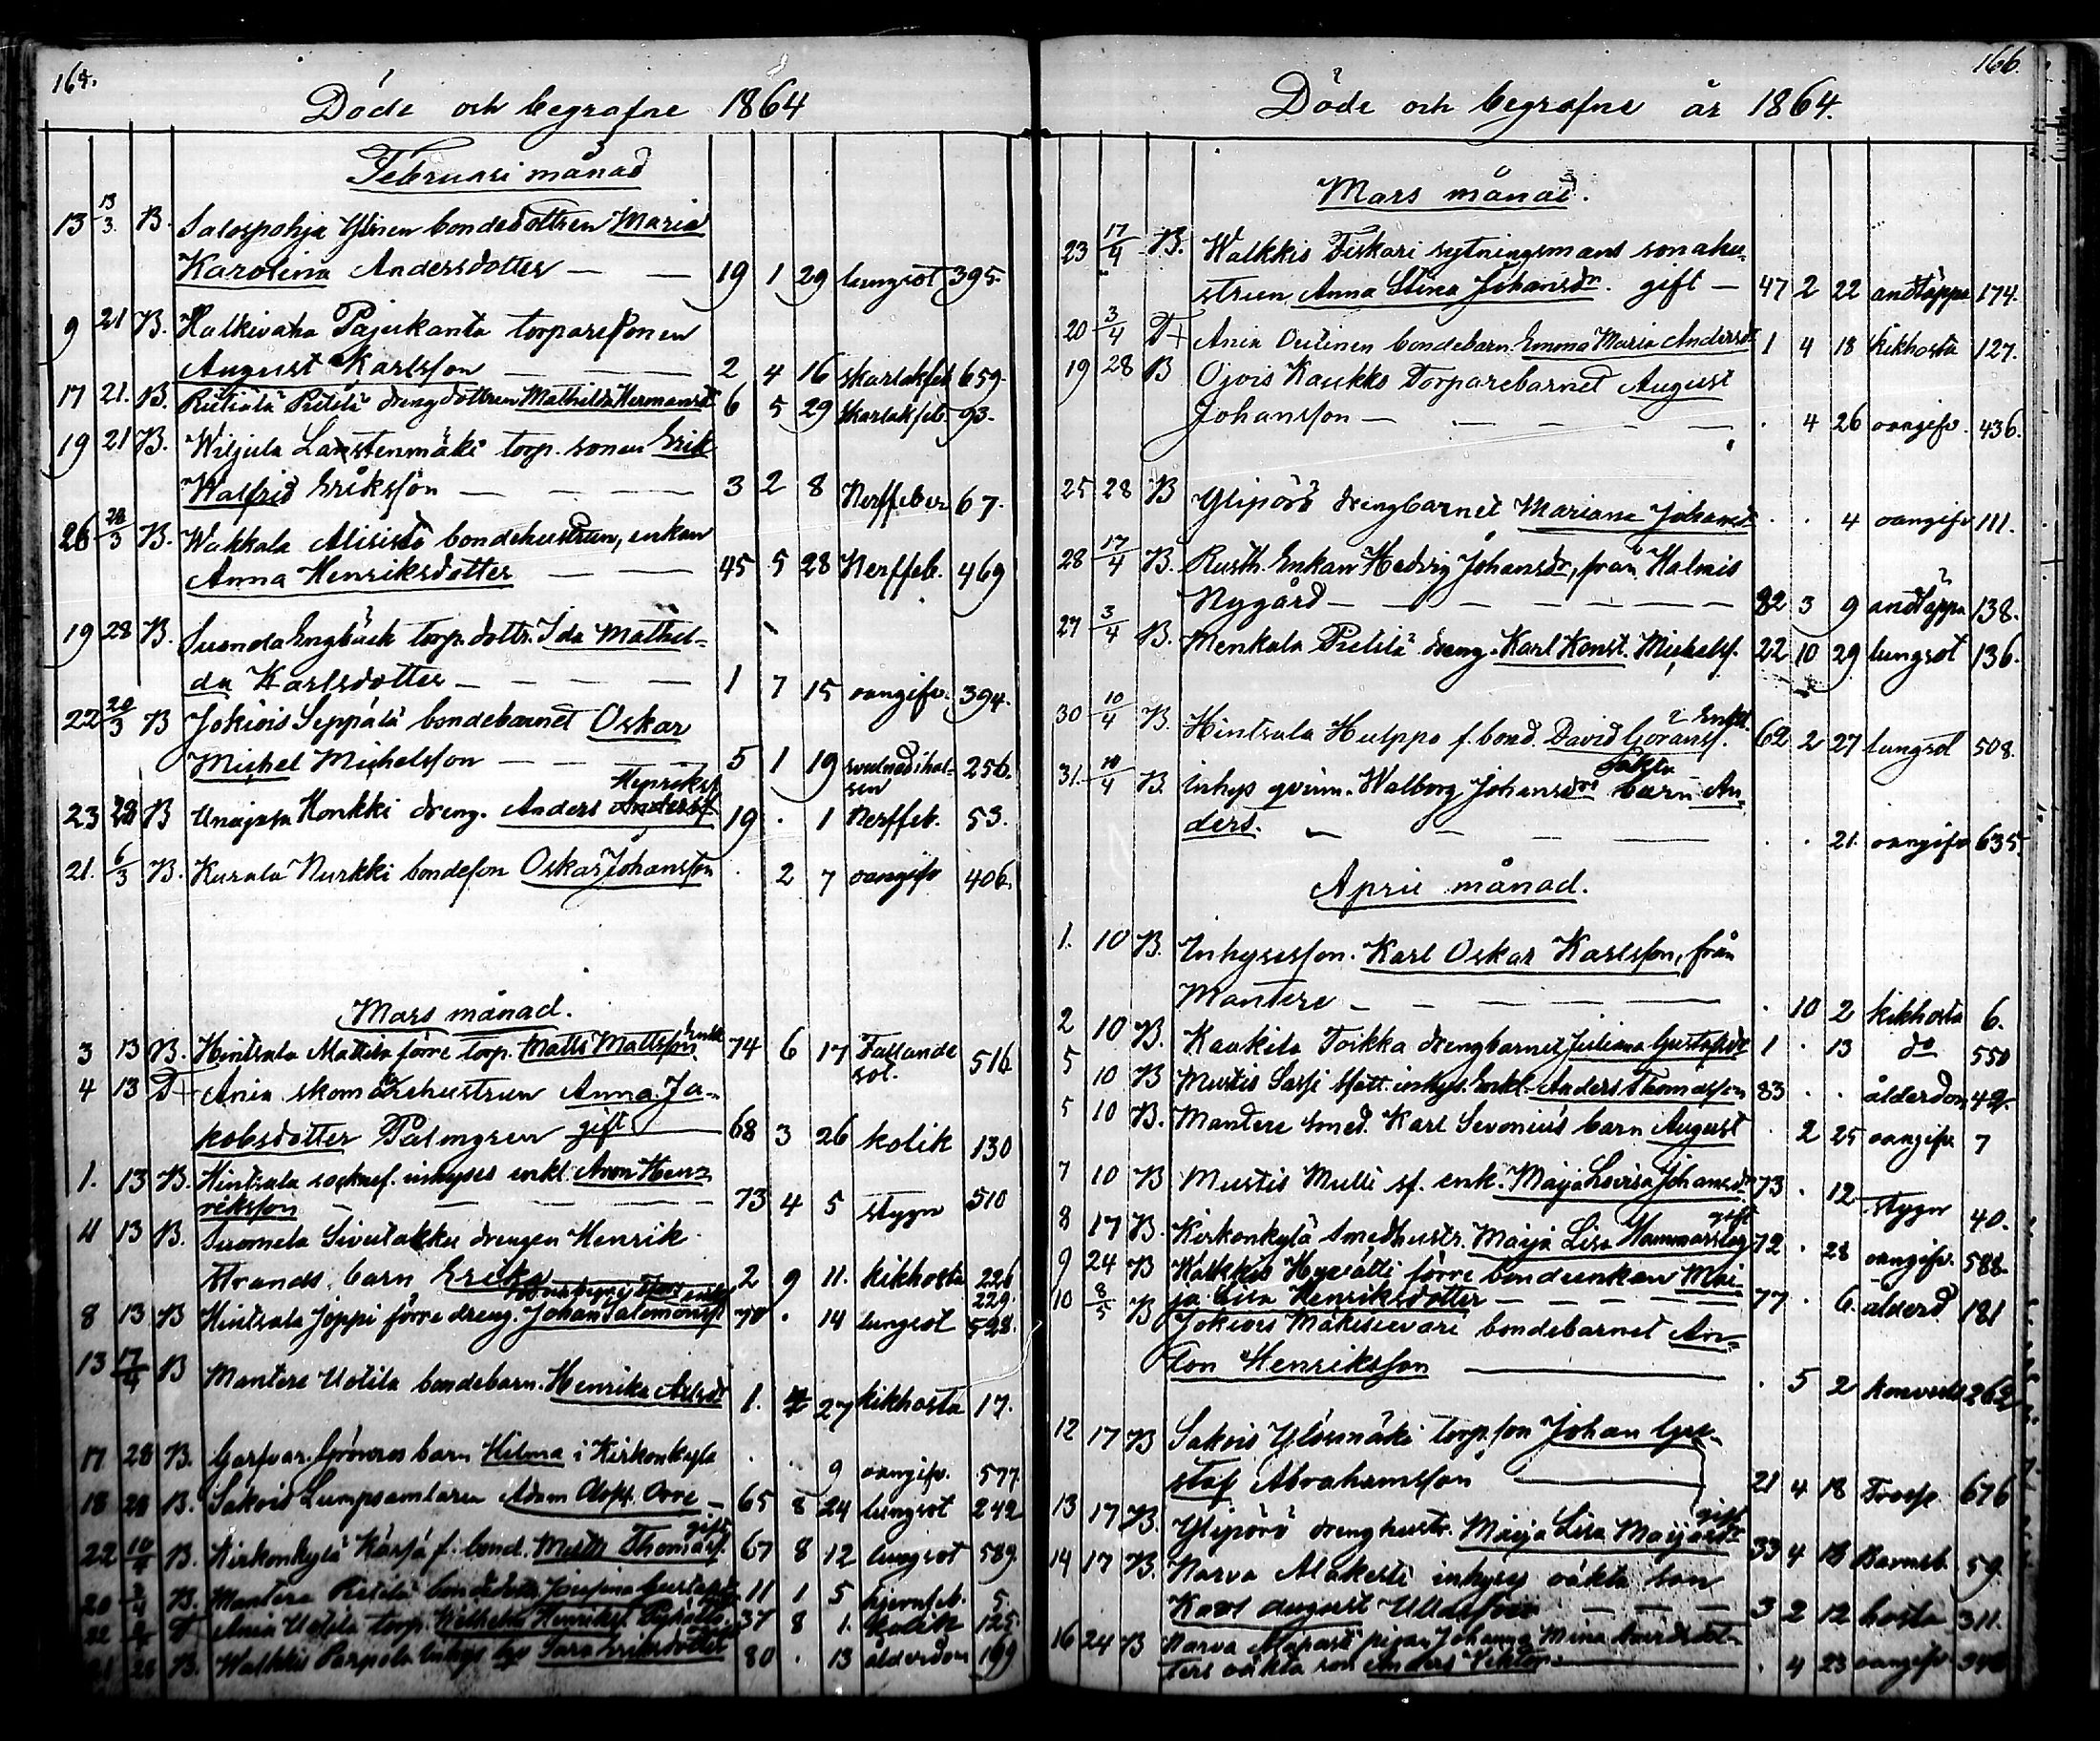 165.
Döde och begrafne 1864
Februari månad
13 13/3. B. Salospohja Ylinen bondedottren Maria
Karolina Andersdotter — — 19 1 29 lungsot 395.
9 21 B. Halkivaha Pajukanta torparesonen
August Karlsson — — 2 4 16 skarlakfeb 659.
17 21. B. Rutiala Pietilä drengdottren Mathilda Hermansd 6 5 29 Skarlakfeb. 93.
19 21 B. Wiljula torp. sonen Erik
Walfrid Eriksson — — — 3 2 8 Nerffeber 67.
26 28/3 B. Wakkala Alisisto bondehustrun, enkan
Anna Henriksdotter — — 45 5 28 Nerffeb. 469
19 28 B. Suonda Engbäck torp. dottr. Ida Mathil-
da Karlsdotter — — — 1 7 15 oangifv. 394.
22 20/3 B Jokiois Seppälä bondebarnet Oskar
Michel Michelsson — — 5 1 19 svulnad i hal- 256.
sen
Henrikss
23 28 B Honkki dreng. Anders Anderss. 19 . 1 Nerffeb. 53.
21. 6/3 B. Kurala Nurkki bondeson Oskar Johansson . 2 7 oangifv 406.
Mars månad.
3 13 B. Hintsala Mattila förre torp. Matts Mattsson enkl 74 6 17 Fallande 516
sot.
4 13 D+ Ania skomakarehustrun Anna Ja-
kobsdotter Palmgren gift — 68 3 26 kolik 130
1. 13 B. Hintsala inhyses enkl. Aron Hen-
riksson — — — 73 4 5 stygn 510
4 13 B. Suomela Sivulakka drengen Henrik
Strands barn Erika — 2 9 11. kikhosta 226
229.
8 13 B Hintsala Joppi förre dreng. Johan Salomonss 70 . 14 lungsot 528.
13 17/4 B Mantere Uotila bondebarn. Henrika Axelsdr 1. 4 27 kikhosta 17.
17 28 B. Garfvar. Grönroos barn Hilma i Kirkonkylä . . 9 oangifv. 577.
18 28 B. Sakois Lumpsamlaren Adam Olofs. Orre — 65 8 24 lungsot 242
gift
22 10/4 B. Kirkonkylä Kärsä f. bond. Matts Thomass. 67 8 12 lungsot 589.
20 3/4 B. Mantere Pietilä Josefina Gustafsd 11 1 5 hjernfeb. 5.
22 3/4 D Ania Uotila torp. Wilhelm Henrikss. 37 8 1. kolik 125.
28 B. Walkkis Parpola inhys Sara Eriksdotter 80 . 13 ålderdom 199
166.
Döde och begrafne år 1864.
Mars månad.
23 17/4 B. Walkkis Fiskari sytningsmans sonahu-
strun, Anna Stina Johansdr. gift — 47 2 22 andtäppa 174.
20 3/4 D+ Ania Outinen bondebarn Emma Maria Andersd 1 4 18 kikhosta 127.
19 28 B Ojois Kaukko Torparebarnet August
Johansson — — — — . 4 26 oangifv. 436.
25 28 B Ylipörö drengbarnet Mariana Johansd . . 4 oangifv 111.
28 17/4 B. Rusth. Enkan Hedvig Johansdr, från Halmis
Nygård — — — — 82 3 9 andtäppa 138.
27 3/4 B. Menkala Pietilä dreng. Karl Konst. Michelss. 22 10 29 lungsot 136.
30 10/4 B. Hintsala Hulppo f. bond. David Göranss. enkl. 62 2 27 lungsot 508.
31. 10/4 B. inhys qvinn. Walborg Johansdrs oäkta barn An-
ders. — — — . . 21. oangifv 635.
April månad.
1. 10 B. Inhysesson. Karl Oskar Karlsson, från
Mantere — — — — . 10 2 kikhosta 6.
2 10 B. Kaakila Toikka drengbarnet Juliana Gustafsdr 1 . 13 do 550
5 10 B Mustis Sassi fatt. inhys. Enkl. Anders Thomasson 83 . . ålderdom 42.
5 10 B. Mantere smed. Karl Sevonius barn August . 2 25 oangifv 7
7 10 B Mustis Mulli sf. enk. Maija Lovisa Johansdr 73 . 12 stygn 40.
gift
8 17 B. Kirkonkylä Smedhustr. Maija Lisa Hammarsten 72 . 28 oangifv. 588
9 24 B Walkkis Hyvätti förre bondeenkan Mai-
ja Lisa Henriksdotter — — — 77 . 6. ålderd 181
10 8/5 B Jokiois bondebarnet An-
ton Henriksson — . 5 2 Konvuls 262
12 17 B Sakois Ylösmäki torp. son Johan Gu-
staf Abrahamsson — 21 4 18 Trosse 676
gift
13 17 B. Ylipörö drenghustr. Maija Lisa Maijasdr 33 4 18 Barnsb. 59.
14 17 B. Narva Alakesti inhyses oäkta son
Karl August — — 3 2 12 hosta 311.
16 24 B Narva pigan Johanna Mina
ters oäkta son Anders Viktor — . 4 23 oangifv